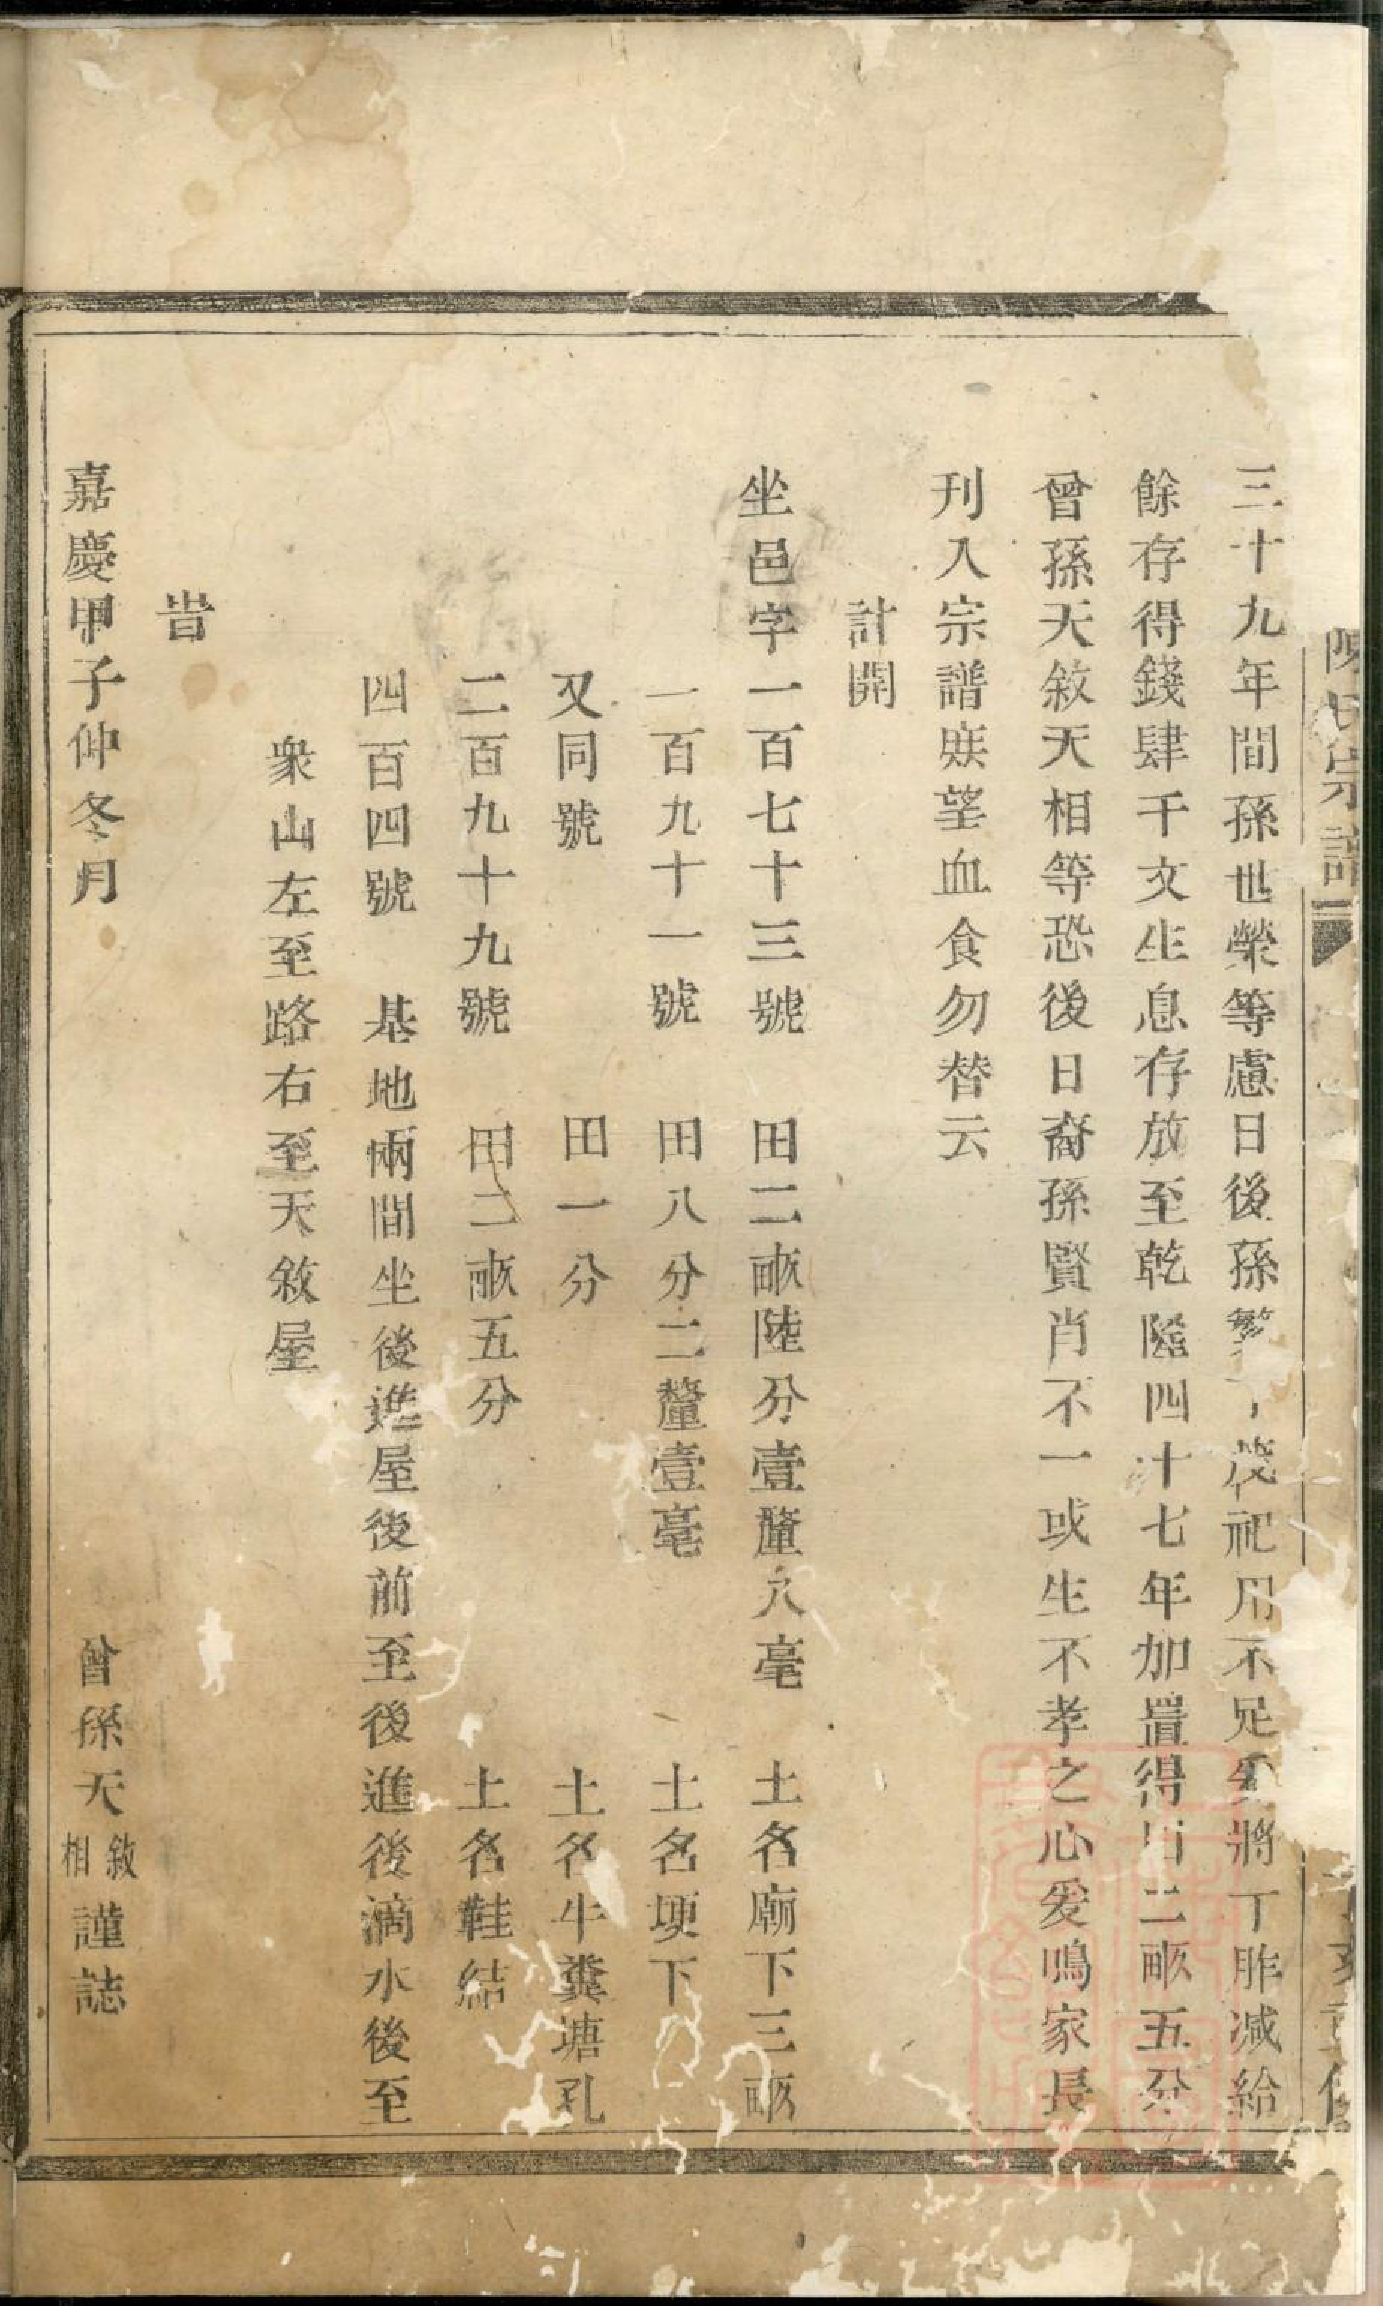 宗譜
三十九年間孫世榮等慮日後孫繁丁茂祀用不足爰將丁胙减給
餘存得錢肆千文生息存放至乾隆四十七年加置得田二畝五分
曾孫天敘天相等恐後日裔孫賢肖不一或生不孝之心爰鳴家長
刋入宗譜庻望血食勿替云
計開
坐邑字一百七十三號 田二畝陸分壹釐八毫 土名廟下三畝
一百九十一號 田八分二釐壹毫 土名埂下
又同號 田一分 土名牛糞塘孔
二百九十九號 田二畝五分 土名鞋結
四百四號 基地兩間坐後進屋後前至後進後滴水後至
衆山左至路右至天敘屋
旹
嘉慶甲子仲冬月 曾孫天敘相謹誌